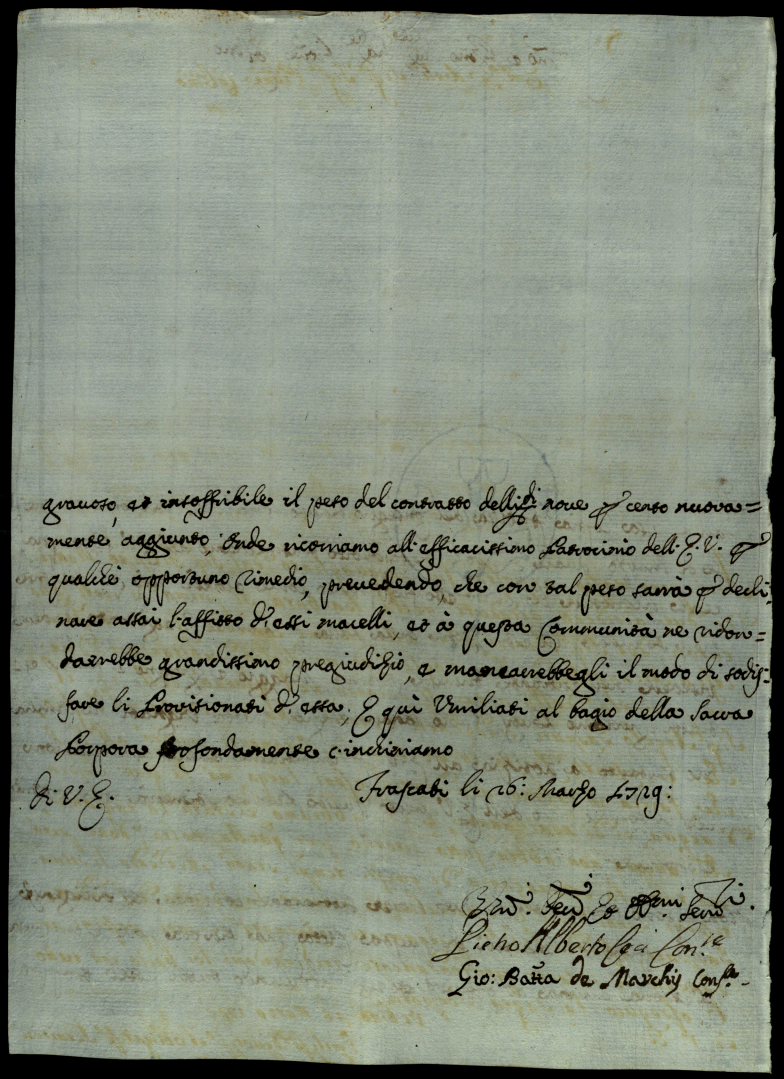 gravoso, et insoffribile il peso del contrasto delli di nove p cento nuova=
mente aggiunto, Onde ricorriamo all'efficacissimo Patrocinio dell'E.V. p
qualche opportuno rimedio, prevedendo, che con tal peso sarrà p decli
nare assai l'affitto d'essi macelli, et à questa Communità ne ridon=
darrebbe grandissimo pregiudizio, e mancarrebbegli il modo di sodis=
fare li Provisionati d'essa, E quì Umiliati al bagio della Sacra
Porpora profondamente c'inchiniamo
Di V.E. Frascati li 26: Marzo 1729:
Pietro Alberto Ceci Con.re
Gio: Batta de Marchis Cons.re